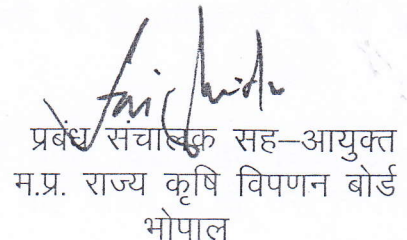 प्रबंध संचालक सह–आयुक्त
म.प्र. राज्य कृषि विपणन बोर्ड
भोपाल